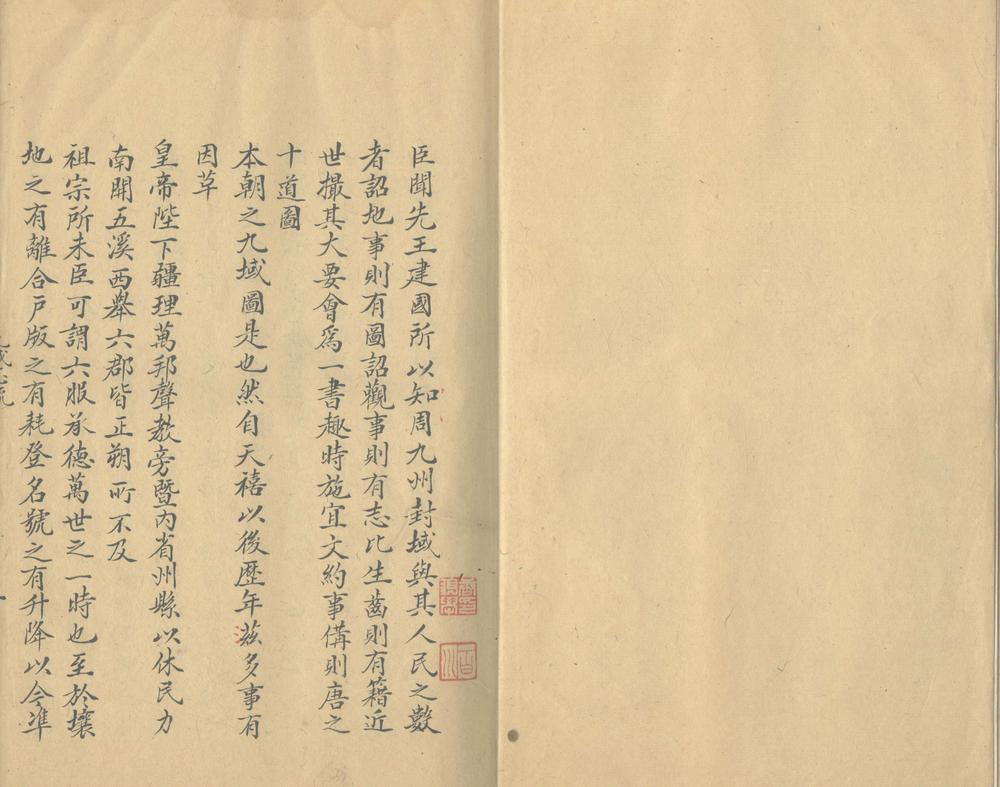 臣聞先王建國所以知周九州封域與其人民之數
者詔地事則有圖詔觀事則有志比生齒則有籍近
世撮其大要會爲一書趣時施宜文約事備則唐之
十道圖
本朝之九域圖是也然自天禧以後歷年滋多事有
因革
皇帝陛下疆理萬邦聲教旁暨內省州縣以休民力
南開五溪西舉六郡皆正朔所不及
祖宗所未臣可謂六服承德萬世之一時也至於壤
地之有離合戶版之有耗登名號之有升降以今準